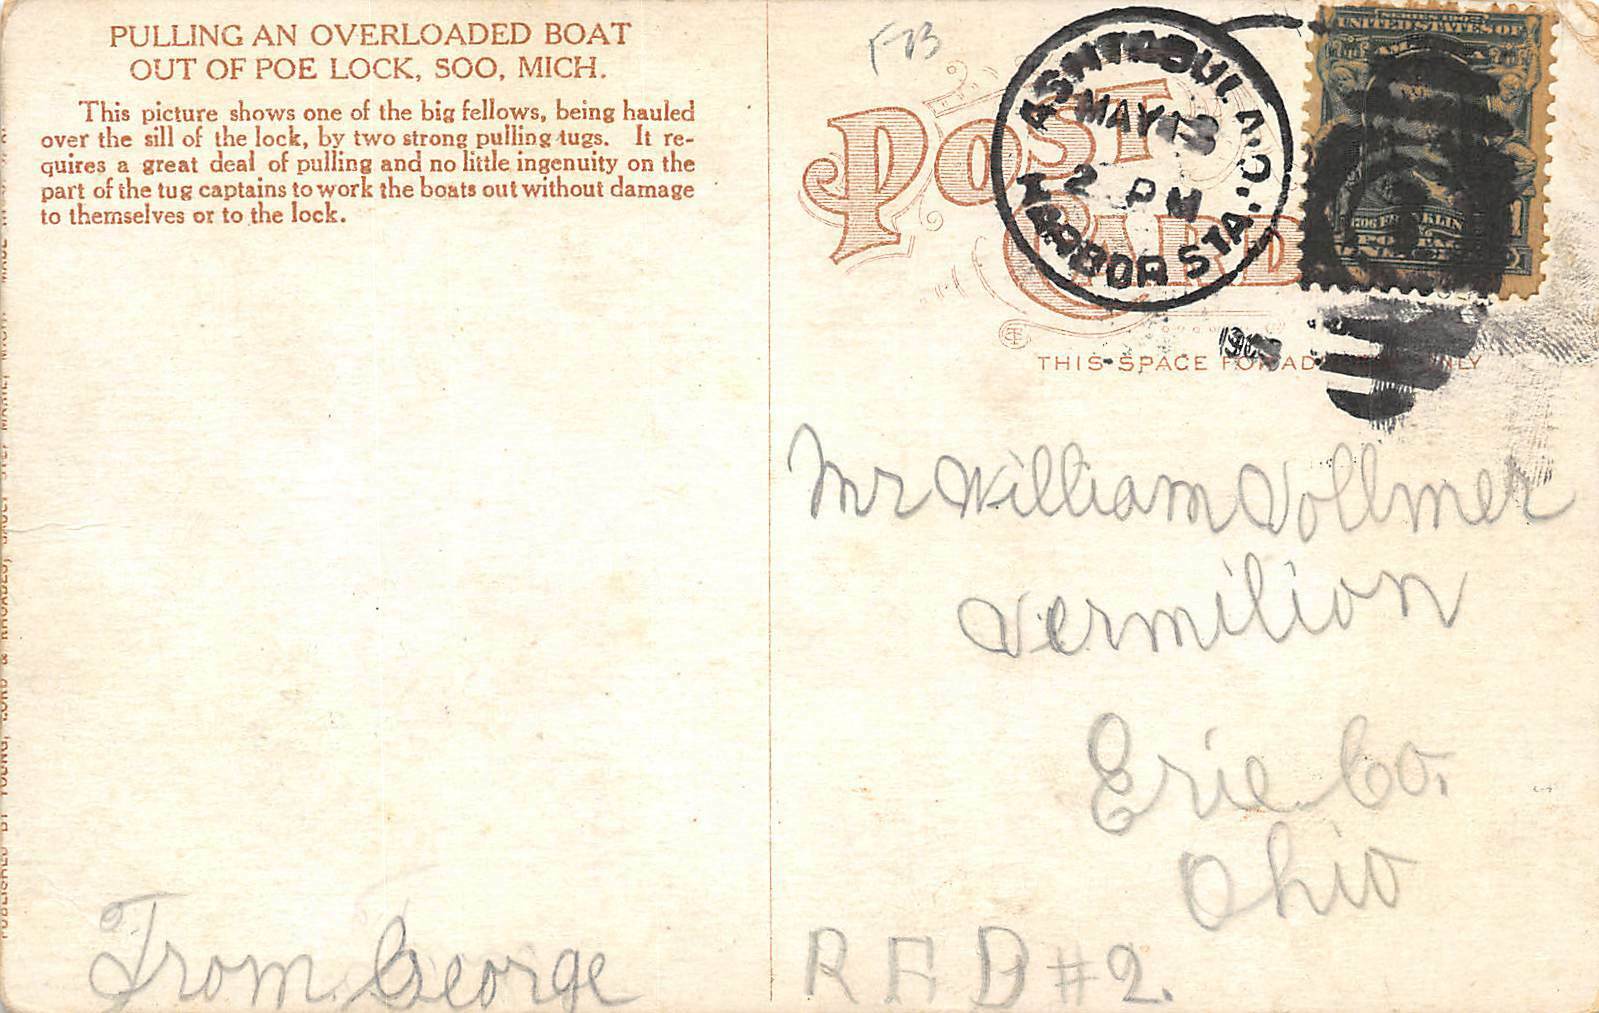 PULLING AN OVERLOADED BOAT
OUT OF POE LOCK, SOO, MICH.
This picture shows one of the big fellows, being hauled
over the sill of the lock, by two strong pulling tugs. It re-
quires a great deal of pulling and no little ingenuity on the
part of the tug captains to work the boats out without damage
to themselves or to the lock.
POST
CARD
ASHTABULA, O.
MAY 13
2 PM
HARBOR STA.
UNITED STATES OF
AMERICA
FRANKLIN
THIS SPACE FOR AD
Mr William Vollmer
Vermilion
Erie Co.
Ohio
R F D #2.
From George